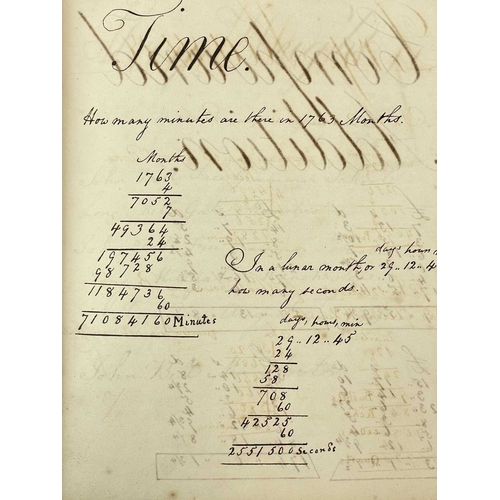 Time.
How many minutes are there in 1763 Months.
Months
1763
4
7052
7
49364
24
197456
98728
1184736
60
71084160 Minutes
days, hours,
In a lunar month, or 29..12..4
how many seconds.
days, hours, min
29..12..45
24
128
58
708
60
42525
60
2551500 Seconds